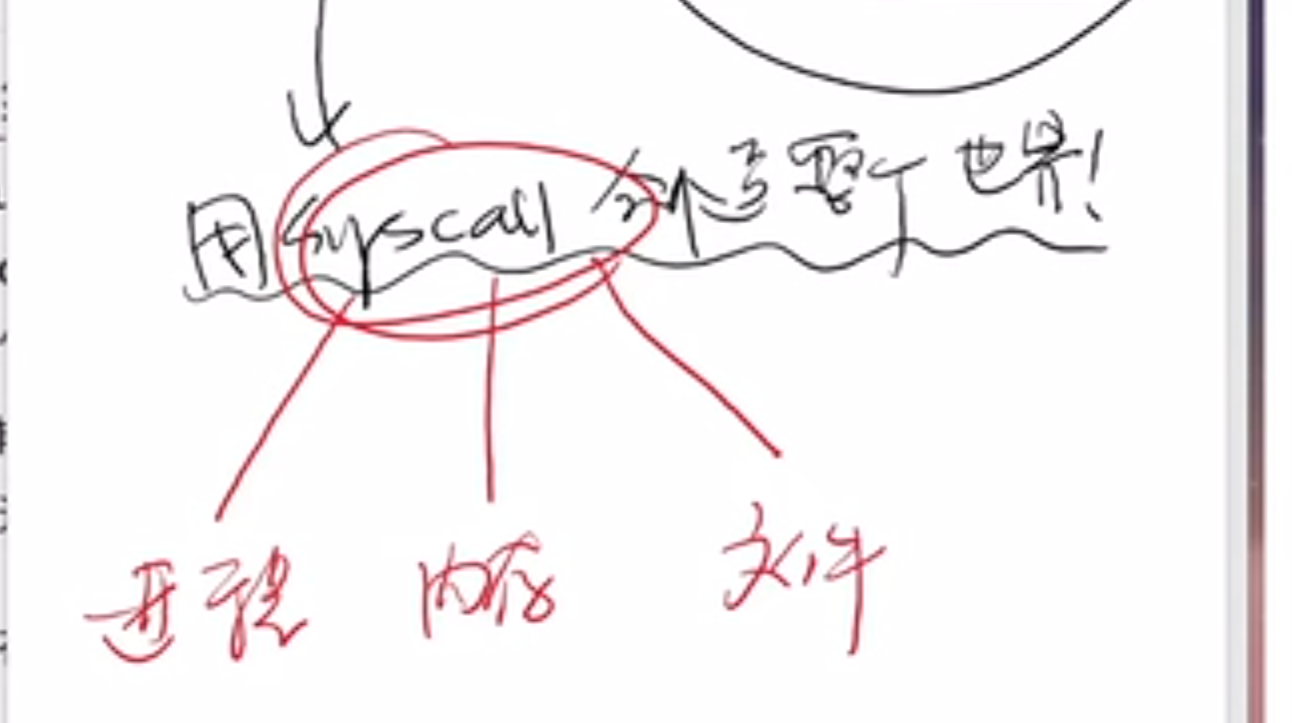 用 syscall 创造整个世界!
进程 内存 文件